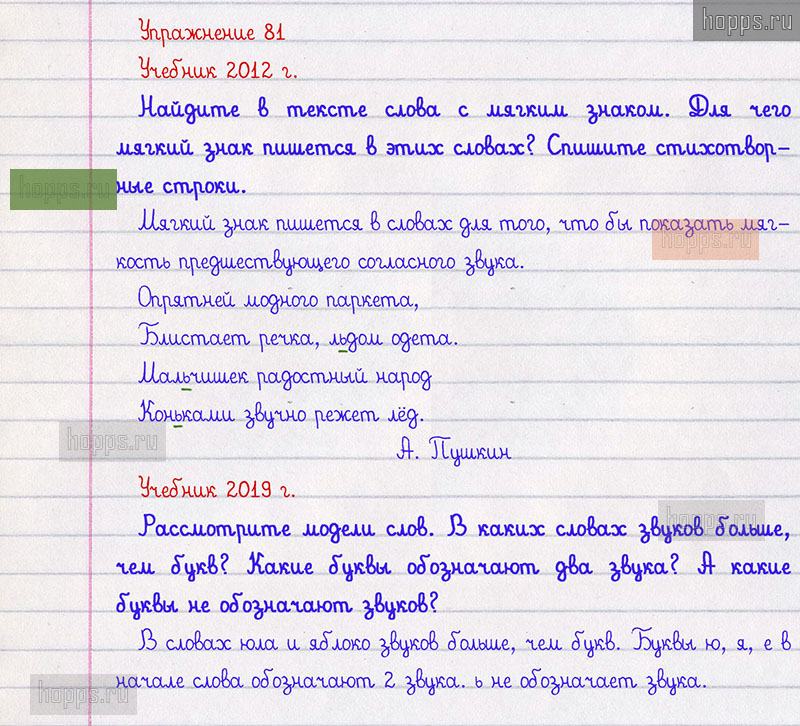 hopps.ru
Упражнение 81
Учебник 2012 г.
Найдите в тексте слова с мягким знаком. Для чего
мягкий знак пишется в этих словах? Спишите стихотвор-
hopps.ru
ные строки.
Мягкий знак пишется в словах для того, что бы показать мяг-
hopps.ru
кость предшествующего согласного звука.
Опрятней модного паркета,
Блистает речка, льдом одета.
Мальчишек радостный народ
Коньками звучно режет лёд.
hopps.ru
А. Пушкин
Учебник 2019 г.
hopps.ru
Рассмотрите модели слов. В каких словах звуков больше,
чем букв? Какие буквы обозначают два звука? А какие
буквы не обозначают звуков?
В словах юла и яблоко звуков больше, чем букв. Буквы ю, я, е в
начале слова обозначают 2 звука. ь не обозначает звука.
hopps.ru